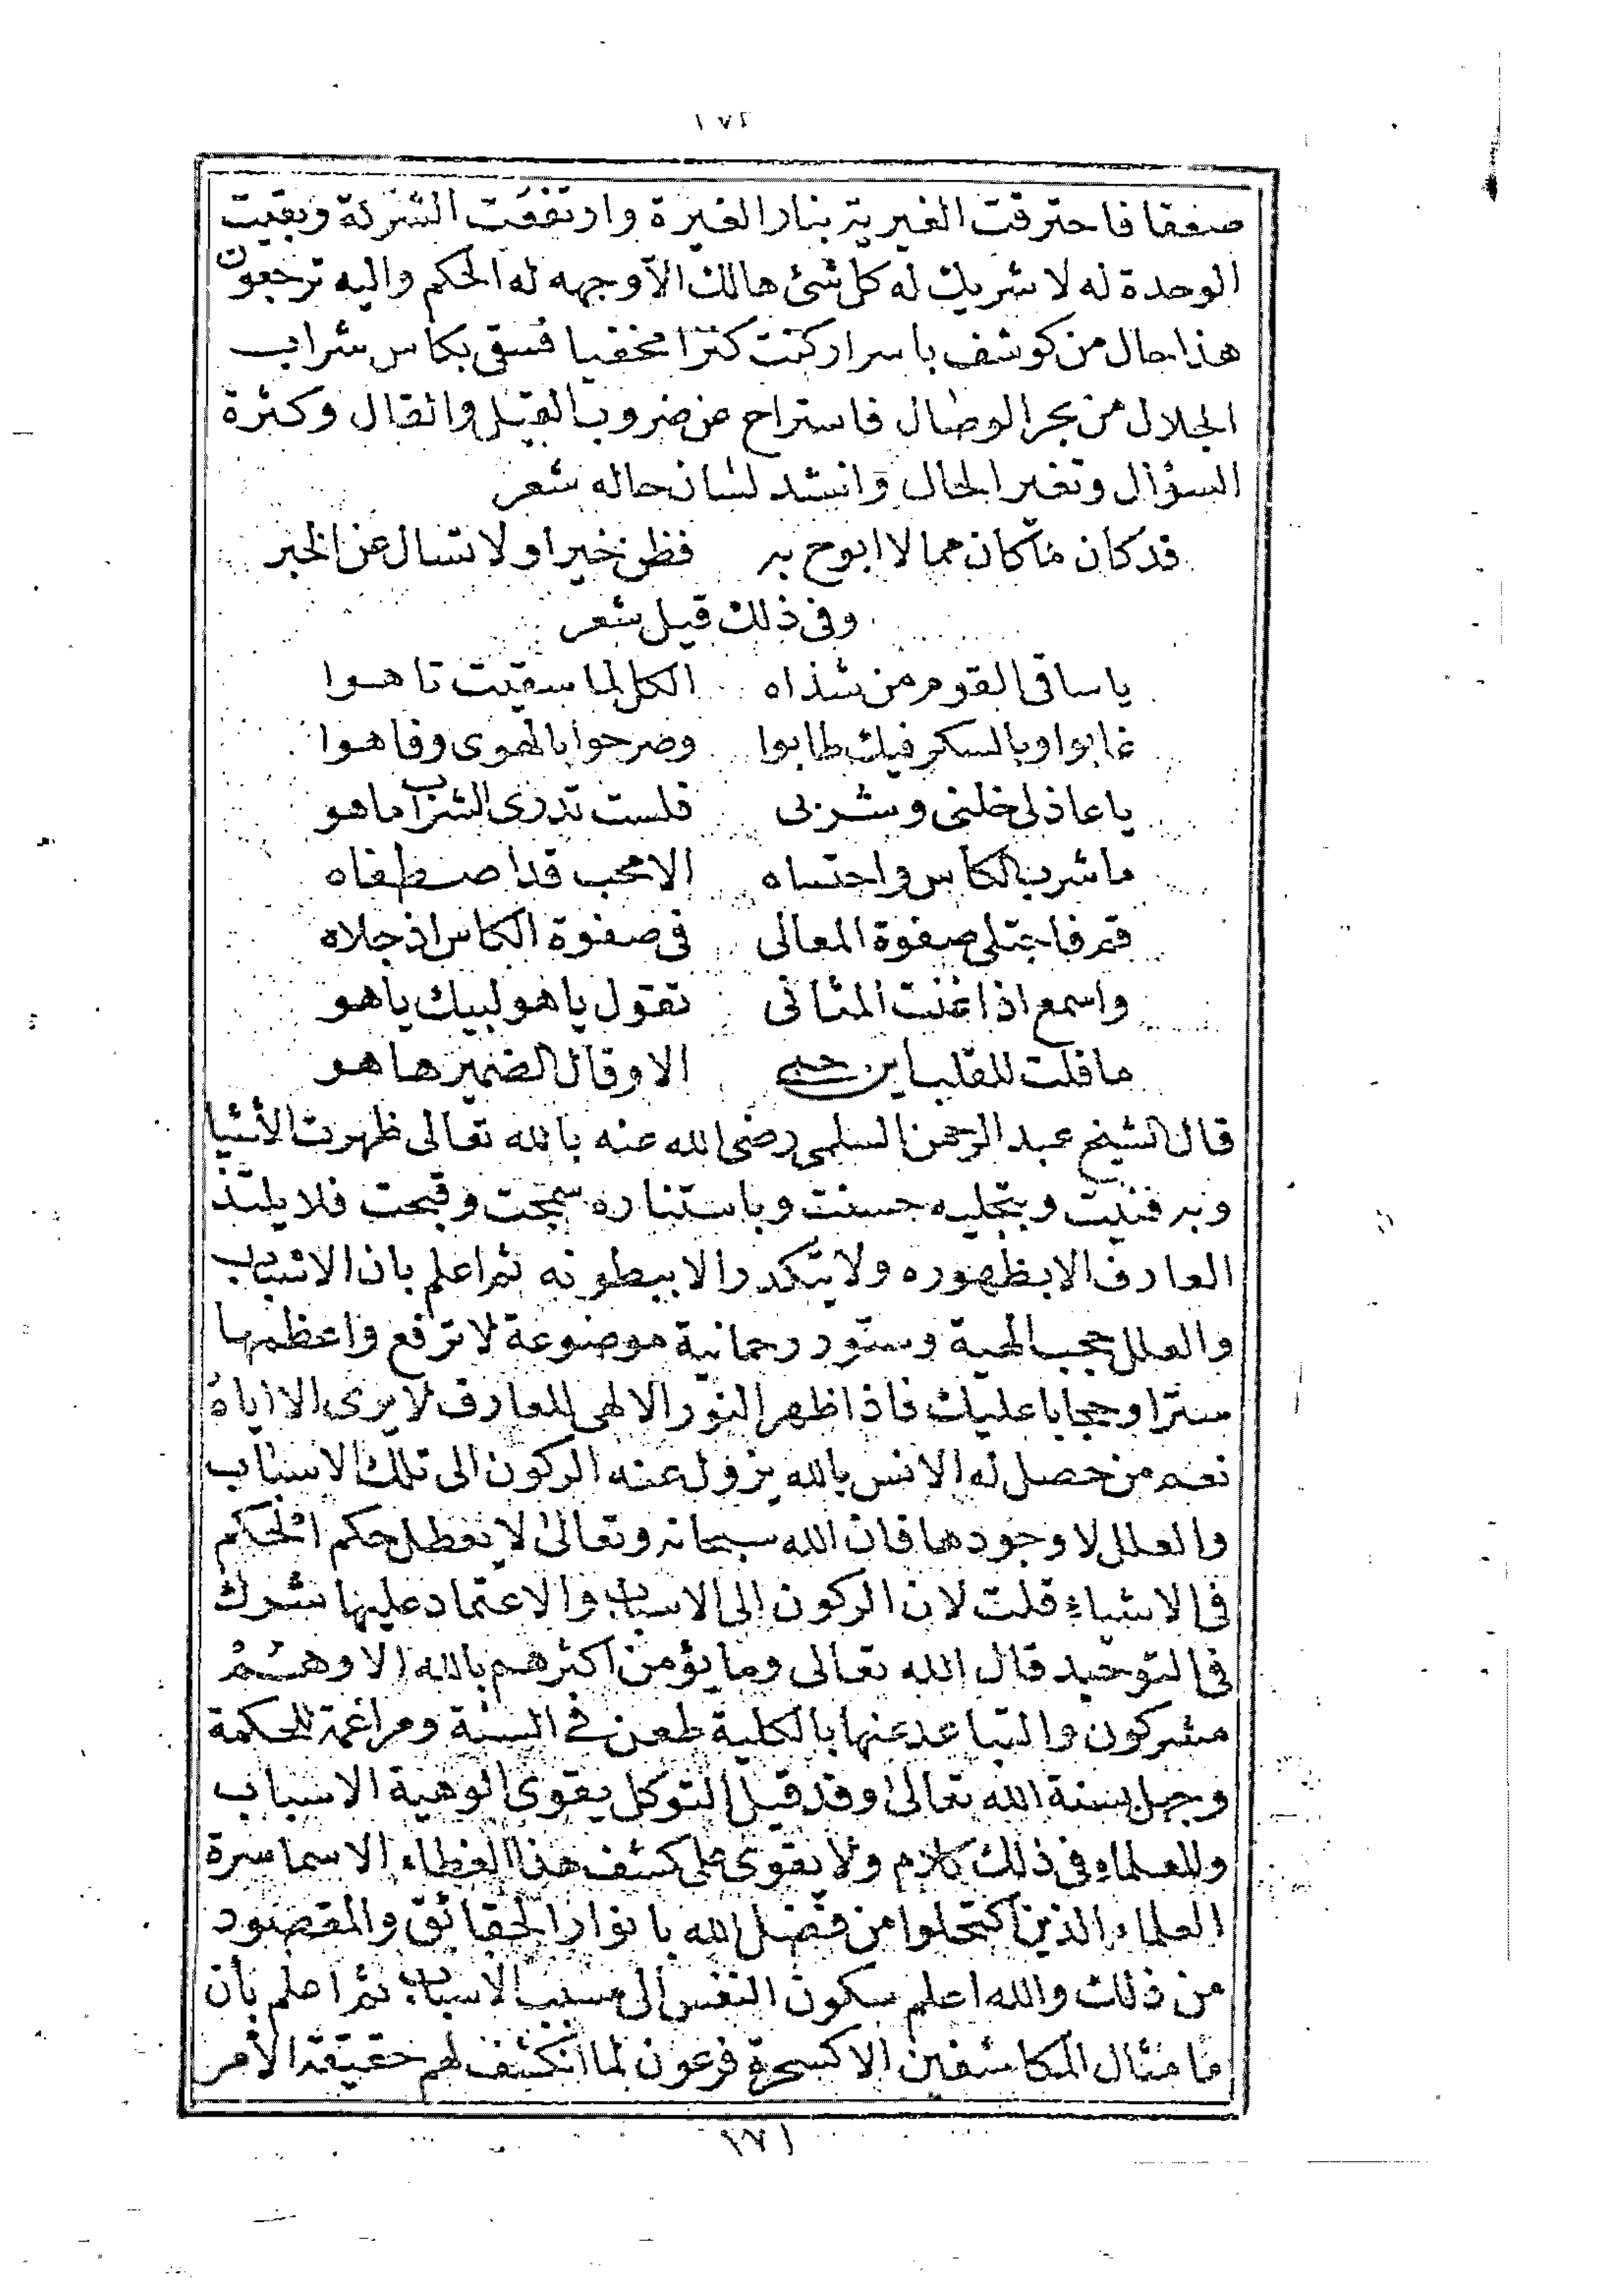 ١٧٢
صعقا فاحترقت الغيرية بنار الغيرة وارتفعت الشركة وبقيت
الوحدة له لا شريك له كل شئ هالك الا وجهه له الحكم واليه ترجعون
هذا حال من كوشف باسرار كنت كنزا مخفيا فسقى بكاس شراب
الجلال من بحر الوصال فاستراح من ضروب القيل والقال وكثرة
السؤال وتغير الحال وانشد لسان حاله شعر
قد كان ما كان مما لا ابوح به فظن خيرا ولا تسال عن الخبر
وفى ذلك قيل شعر
يا ساقى القوم من شذاه الكل لما سقيت تاهوا
غابوا وبالسكر فيك طابوا وصرحوا بالهوى وفاهوا
يا عاذلى خلنى وشربى فلست تدرى الشراب ما هو
ما شرب الكاس واحتساه الا محب قد اصطفاه
قم فاجتلى صفوة المعالى فى صفوة الكاس اذ جلاه
واسمع اذا غنت المثانى تقول يا هو لبيك يا هو
ما قلت للقلب اين حبى الا وقال الضمير ها هو
قال الشيخ عبد الرحمن السلمى رضى الله عنه بالله تعالى ظهرت الأشيا
وبه فنيت وبتجليه حسنت وباستتاره سمجت وقبحت فلا يلتذ
العارف الا بظهوره ولا يتكدر الا ببطونه ثم اعلم بان الاسباب
والعلل حجب الهية وستور رحمانية موضوعة لا ترفع واعظمها
سترا وحجابا عليك فاذا ظهر النور الالهى للعارف لا يرى الا اياه
نعم من حصل له الانس بالله يزول عنه الركون الى تلك الاسباب
والعلل لا وجودها فان الله سبحانه وتعالى لا يعطل حكم الحكم
فى الاشياء قلت لان الركون الى الاسباب والاعتماد عليها شرك
فى التوحيد قال الله تعالى وما يؤمن اكثرهم بالله الا وهم
مشركون والتباعد عنها بالكلية طعن فى السنة ومراغمة للحكمة
وجهل بسنة الله تعالى وقد قيل التوكل يقوى الوهية الاسباب
وللعلماء فى ذلك كلام ولا يقوى على كشف هذا الغطاء الا سماسرة
العلماء الذين اكتحلوا من فضل الله بانوار الحقائق والمقصود
من ذلك والله اعلم سكون النفس الى مسبب الاسباب ثم اعلم بأن
ما مثال المكاشفين الا كسحرة فرعون لما انكشف لهم حقيقة الأمر
١٧١